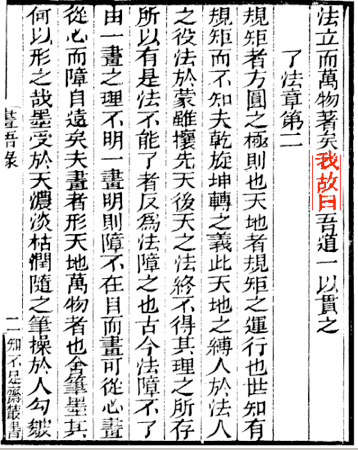 法立而萬物著矣我故曰吾道一以貫之
了法章第二
規矩者方圓之極則也天地者規矩之運行也世知有
規矩而不知夫乾旋坤轉之義此天地之縛人於法人
之役法於蒙雖攘先天後天之法終不得其理之所存
所以有是法不能了者反為法障之也古今法障不了
由一畫之理不明一畫明則障不在目而畫可從心畫
從心而障自遠矣夫畫者形天地萬物者也舍筆墨其
何以形之哉墨受於天濃淡枯潤隨之筆操於人勾皴
畫語錄
二
知不足齋叢書